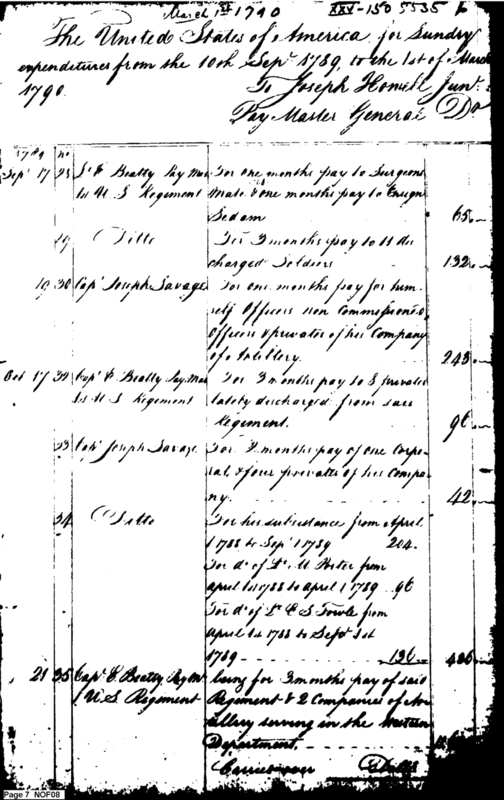 March 1st 1790
XXV-150 5535
The United States of America for Sundry
expenditures from the 10th Sepr 1789, to the 1st of March
1790.
To Joseph Howell Junr.
Pay Master General Dr
1789 no
Sepr 17 Beatty Pay Mas For one months pay to Surgeons
1st U. S Regiment Mate & one months pay to Ensign
Sedam 65
Ditto For 3 months pay to 11 dis
charged Soldiers 132
19 30 Capt Joseph Savage For one months pay for him
self Officers non Commissioned
Officers & privates of his Company
of Artillery. 243
Oct 17 32 Capt E Beatty Pay Mas For 3 months pay to 8 privates
1st U S Regiment lately discharged from said
Regiment. 96
33 Capt Joseph Savage For 2 months pay of one Corpo
ral & four privates of his Compa
ny. 42
34 Ditto For his subsistance from April
1 1788 to Sepr 1 1789 204
For do of Lt M Porter from
april 1st 1788 to april 1 1789 96
For do of Lt E S Fowle from
april 1st 1788 to Septr 1st
1789 136 436
21 35 Capt E Beatty Pay Mr being for 3 months pay of said
U S Regiment Regiment & 2 Companies of Ar
tillery serving in the Western
Department,
Carried over
Page 7 NOF08